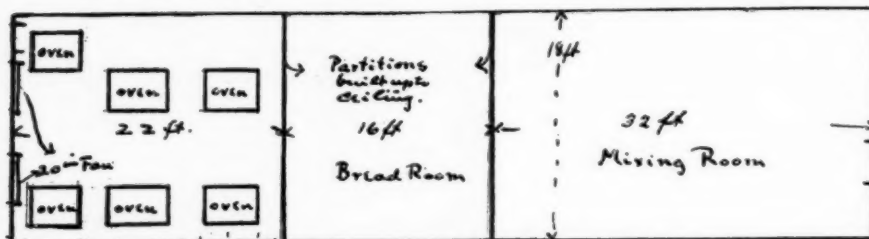 oven
oven
oven
22 ft.
20" Fan
oven
oven
oven
Partitions
built up to
ceiling.
16 ft
Bread Room
18 ft
32 ft
Mixing Room